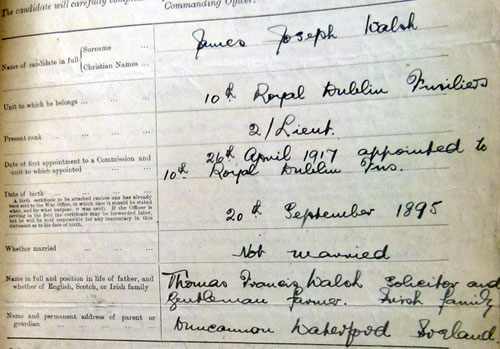 The candidate will carefully complete
Commanding Officer.
Name of candidate in full { Surname ...
Christian Names ...
James Joseph Walsh
Unit to which he belongs ... ... ...
10th Royal Dublin Fusiliers
Present rank ... ... ... ...
2/Lieut.
Date of first appointment to a Commission and
unit to which appointed ... ...
26th April 1917 appointed to
10th Royal Dublin Fus.
Date of birth ... ... ... ...
A birth certificate to be attached (unless one has already
been sent to the War Office, in which case it should be stated
when, and for what purpose, it was sent). If the Officer is
serving in the field the certificate may be forwarded later,
but he will be held responsible for any inaccuracy in this
statement as to his date of birth.
20th September 1895
Whether married ... ... ...
Not married
Name in full and position in life of father, and
whether of English, Scotch, or Irish family
Thomas Francis Walsh Solicitor and
Gentleman farmer. Irish family
Name and permanent address of parent or
guardian ... ... ... ...
Duncannon Waterford